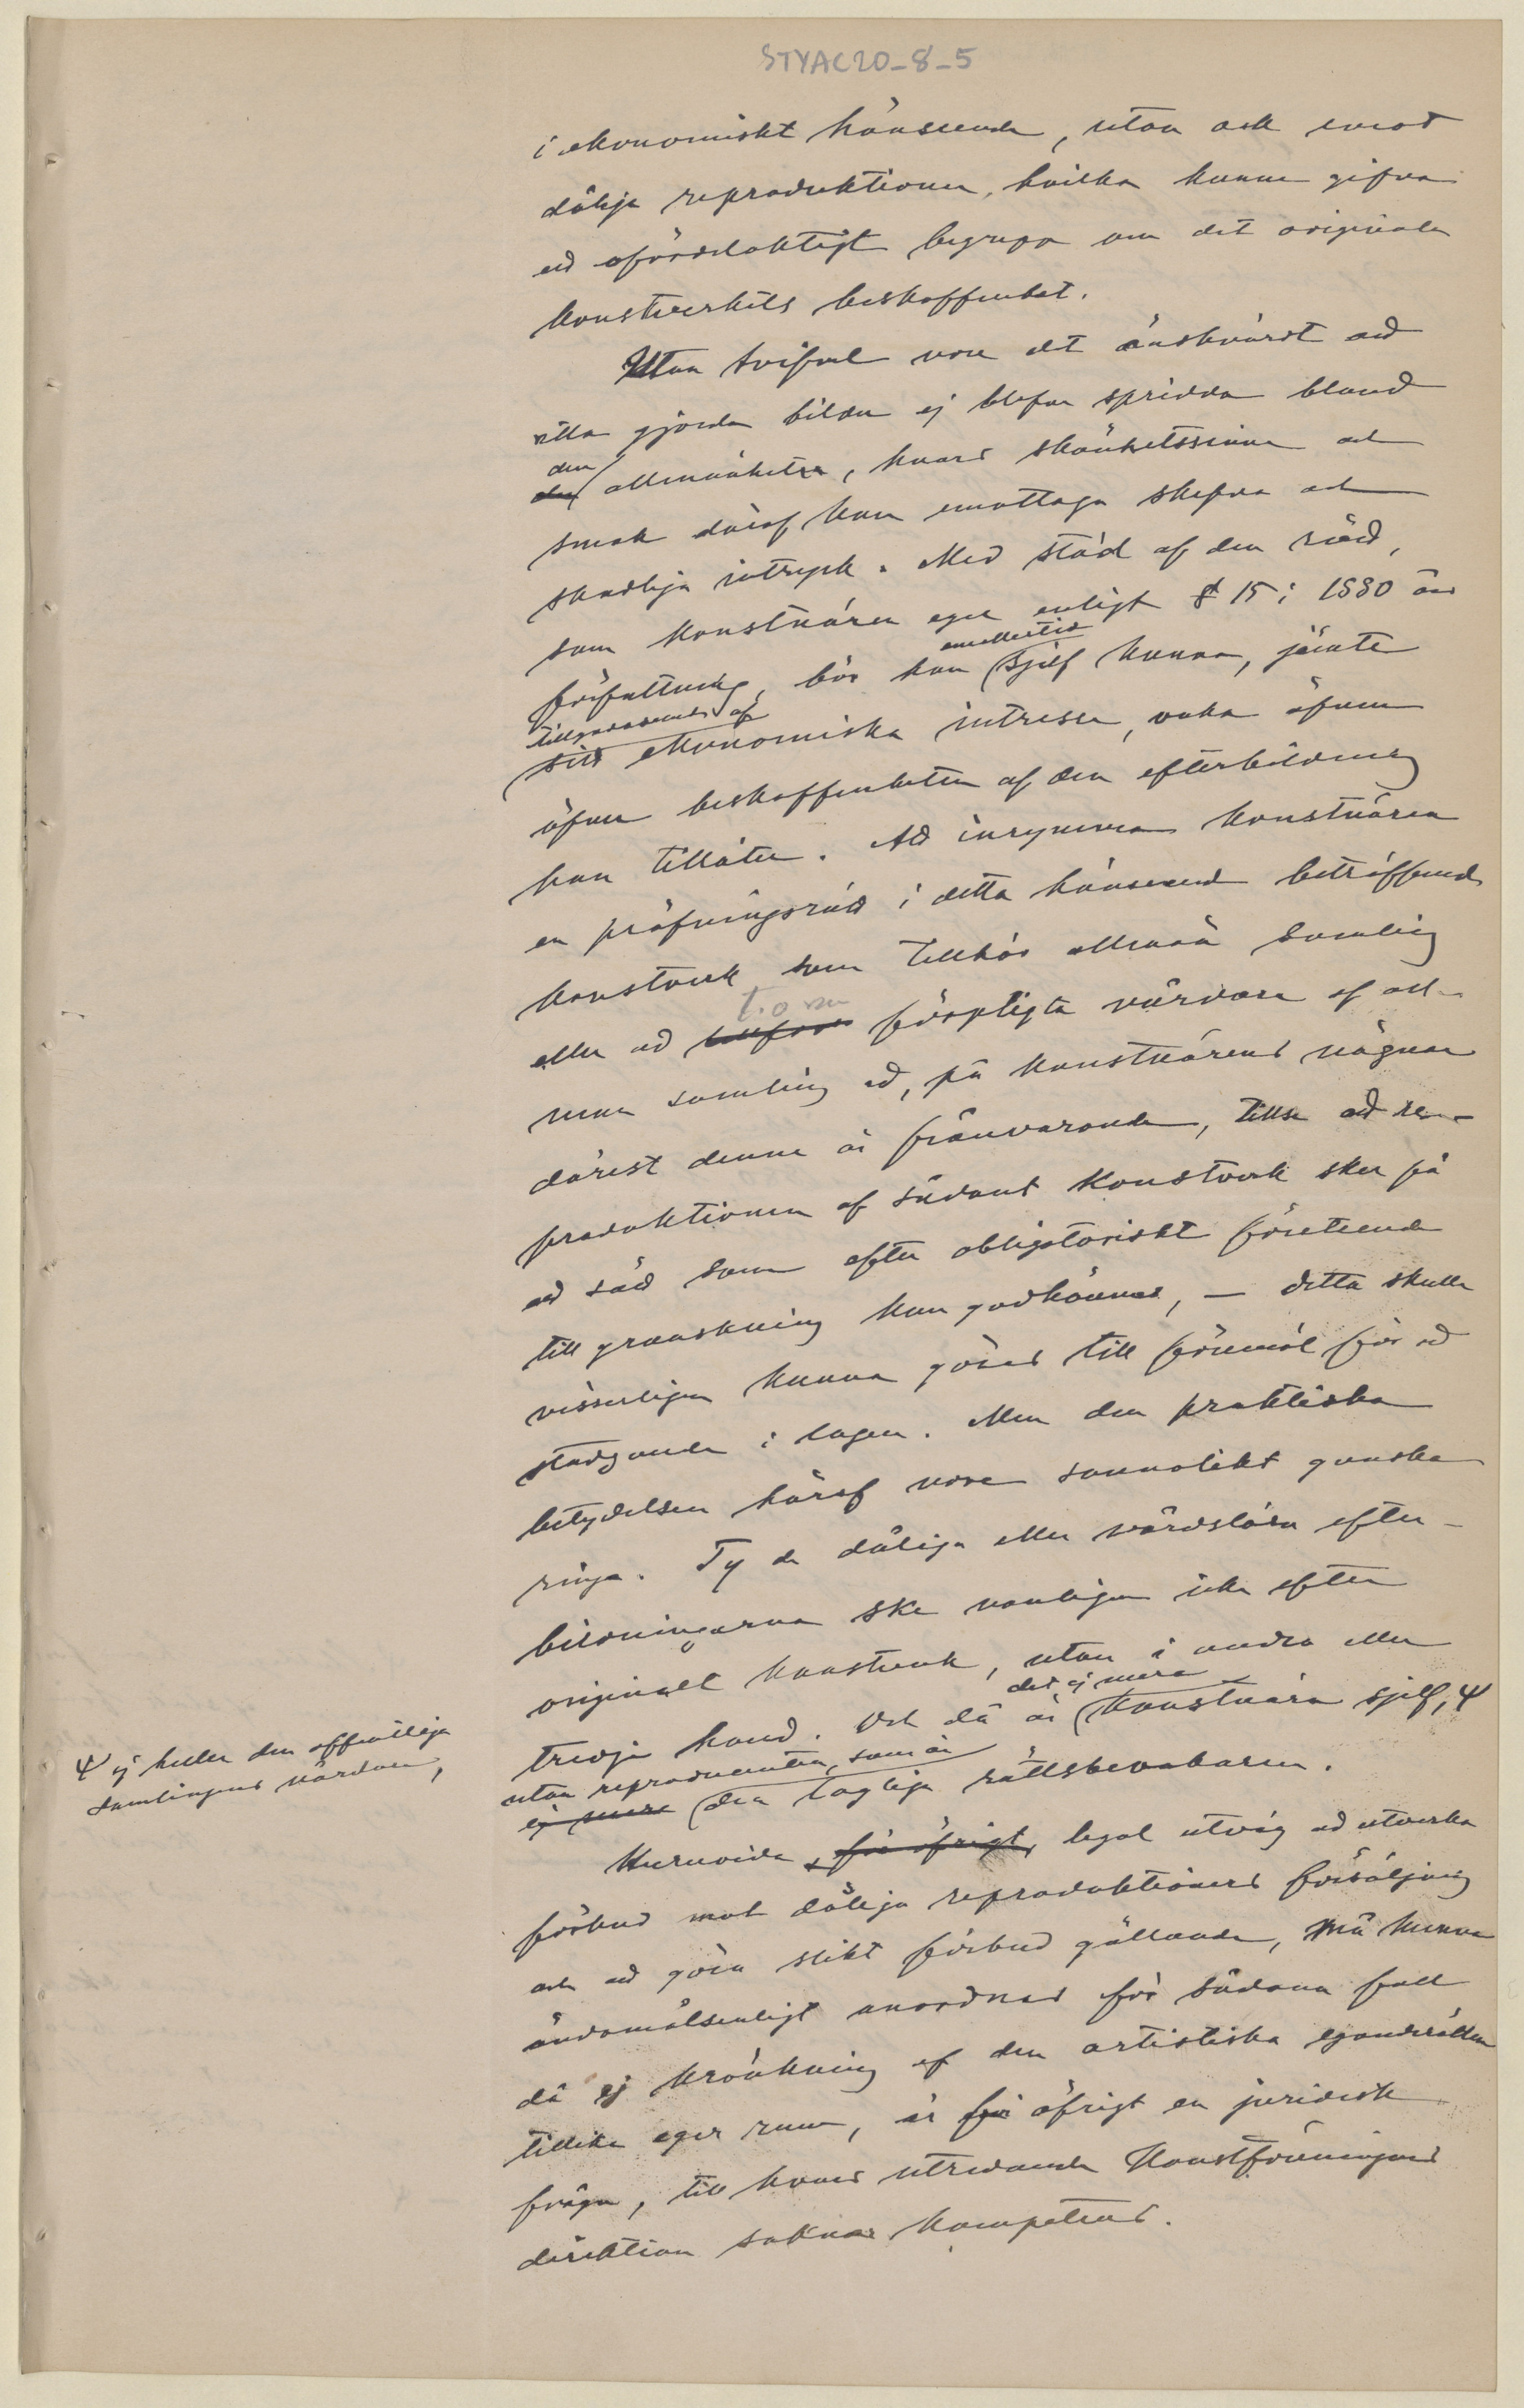 STYAC20_8_5
i ekonomiskt hänseende, utan ock emot
dåliga reproduktioner, hvilka kunna gifva
ett ofördelaktigt begrepp om det originala
konstverkets beskaffenhet.
Utan tvifvel vore det önskvärdt att
illa gjorda bilder ej blefve spridda bland
den
den allmänheten, hvars skönhetssinne och
smak däraf kan emottaga skefva och
skadliga intryck. Med stöd af den rätt,
som konstnären eger enligt § 15 i 1880 års
emellertid
författning, bör han sjelf kunna, jämte
tillgodoseendet af
sitt ekonomiska intresse, vaka äfven
öfver beskaffenheten af den efterbildning
han tillåter. Att inrymma konstnären
en pröfningsrätt i detta hänseende beträffande
konstverk som tillhör allmän samling
t.o.m
eller att förpligta vårdare af all-
män samling att, på konstnärens vägnar
därest denne är frånvarande, tillse att re-
produktionen af sådant konstverk sker på
ett sätt som efter obligatoriskt företeende
till granskning kan godkännas, — detta skulle
visserligen kunna göras till föremål för ett
stadgande i lagen. Men den praktiska
betydelsen häraf vore sannolikt ganska
ringa. Ty de dåliga eller vårdslösa efter-
bildningarna ske vanligen icke efter
originalt konstverk, utan i andra eller
det ej mera
tredje hand. Och då är konstnären sjelf, Ψ
utan reproducenten, som är
ej mera den laglige rättsbevakaren.
Ψ ej heller den offentliga
samlingens vårdare,
Huruvida för öfrigt legal utväg att utverka
förbud mot dåliga reproduktioners försäljning
och att göra slikt förbud gällande, må kunna
ändamålsenligt anordnas för sådana fall
då ej kränkning af den artistiska eganderätten
tillika eger rum, är för öfrigt en juridisk
fråga, till hvars utredande Konstföreningens
direktion saknar kompetens.